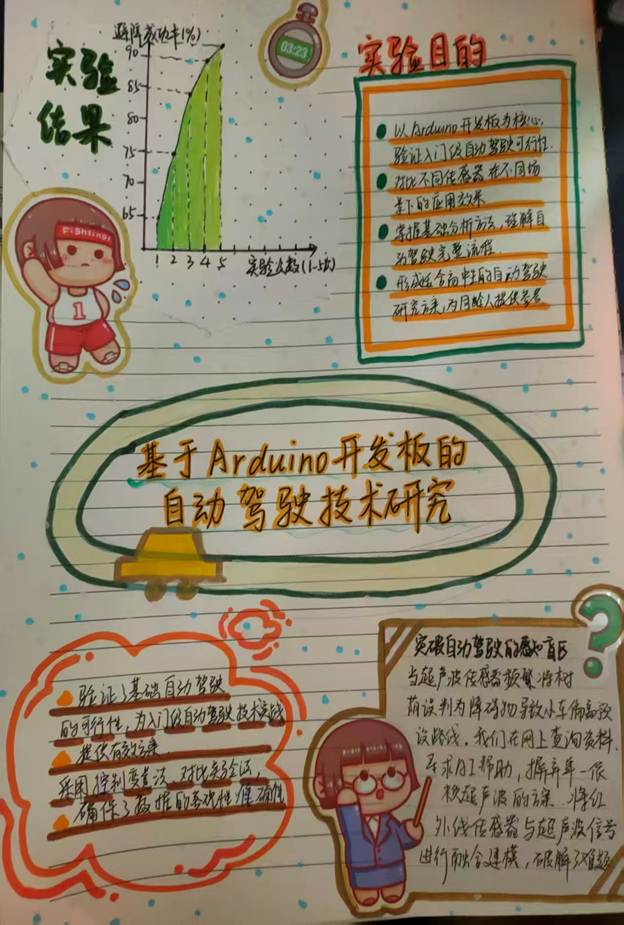 实验
结果
避障成功率(%)
90
85
80
75
70
65
1 2 3 4 5
实验次数(1-5次)
03:23
Fighting!
1
实验目的
以Arduino开发板为核心,
验证入门级自动驾驶可行性.
对比不同传感器在不同场
景下的应用效果
掌握基础分析方法,理解自
动驾驶完整流程.
形成适合高中生的自动驾驶
研究方案,为同龄人提供参考
基于Arduino开发板的
自动驾驶技术研究
验证了基础自动驾驶
的可行性,为入门级自动驾驶技术实践
提供有效方案.
采用控制变量法、对比实验法,
确保了数据的客观性准确性
突破自动驾驶的感知盲区
与超声波传感器频繁将树
荫误判为障碍物导致小车偏离预
设路线.我们在网上查询资料.
寻求AI帮助,摒弃单一依
赖超声波的方案.将红
外线传感器与超声波信号
进行融合建模,破解了难题
?